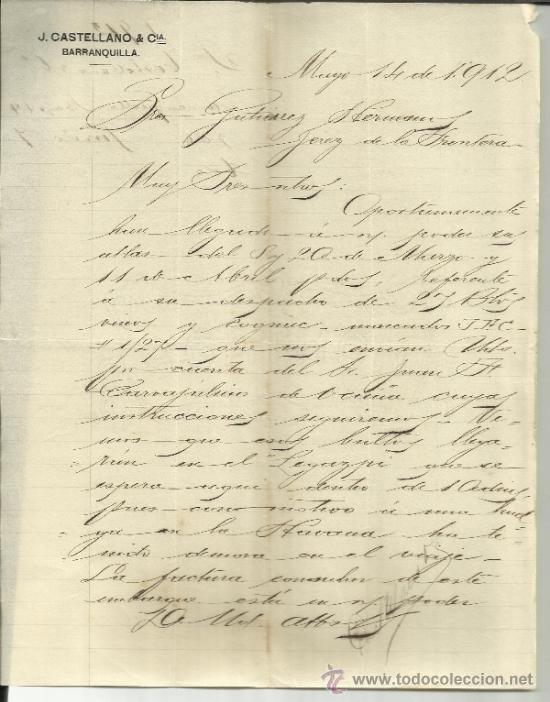 J. CASTELLANO & CIA.
BARRANQUILLA.
Mayo 14 de 1912
Sres Gutiérrez Hermanos
Jerez de la Frontera
Muy Sres ntros:
Oportunamente
han llegado á n/ poder sus
attas del 8 y 20 de Marzo y
11 de Abril pdos, referente
á su despacho de 27 Btos
vinos y cognac marcados
1/27 que nos envian Uds.
por cuenta del Sr. Juan
de Ocaña cuyas
instrucciones seguiremos. Ve-
mos que esos bultos llega-
rán en el "Legazpi" que se
espera aquí dentro de dias,
pues con motivo á una
en la Havana ha te-
nido demora en el viaje.
La factura consular de este
embarque está en n/ poder
De Uds. attos
todocoleccion
http://www.todocoleccion.net